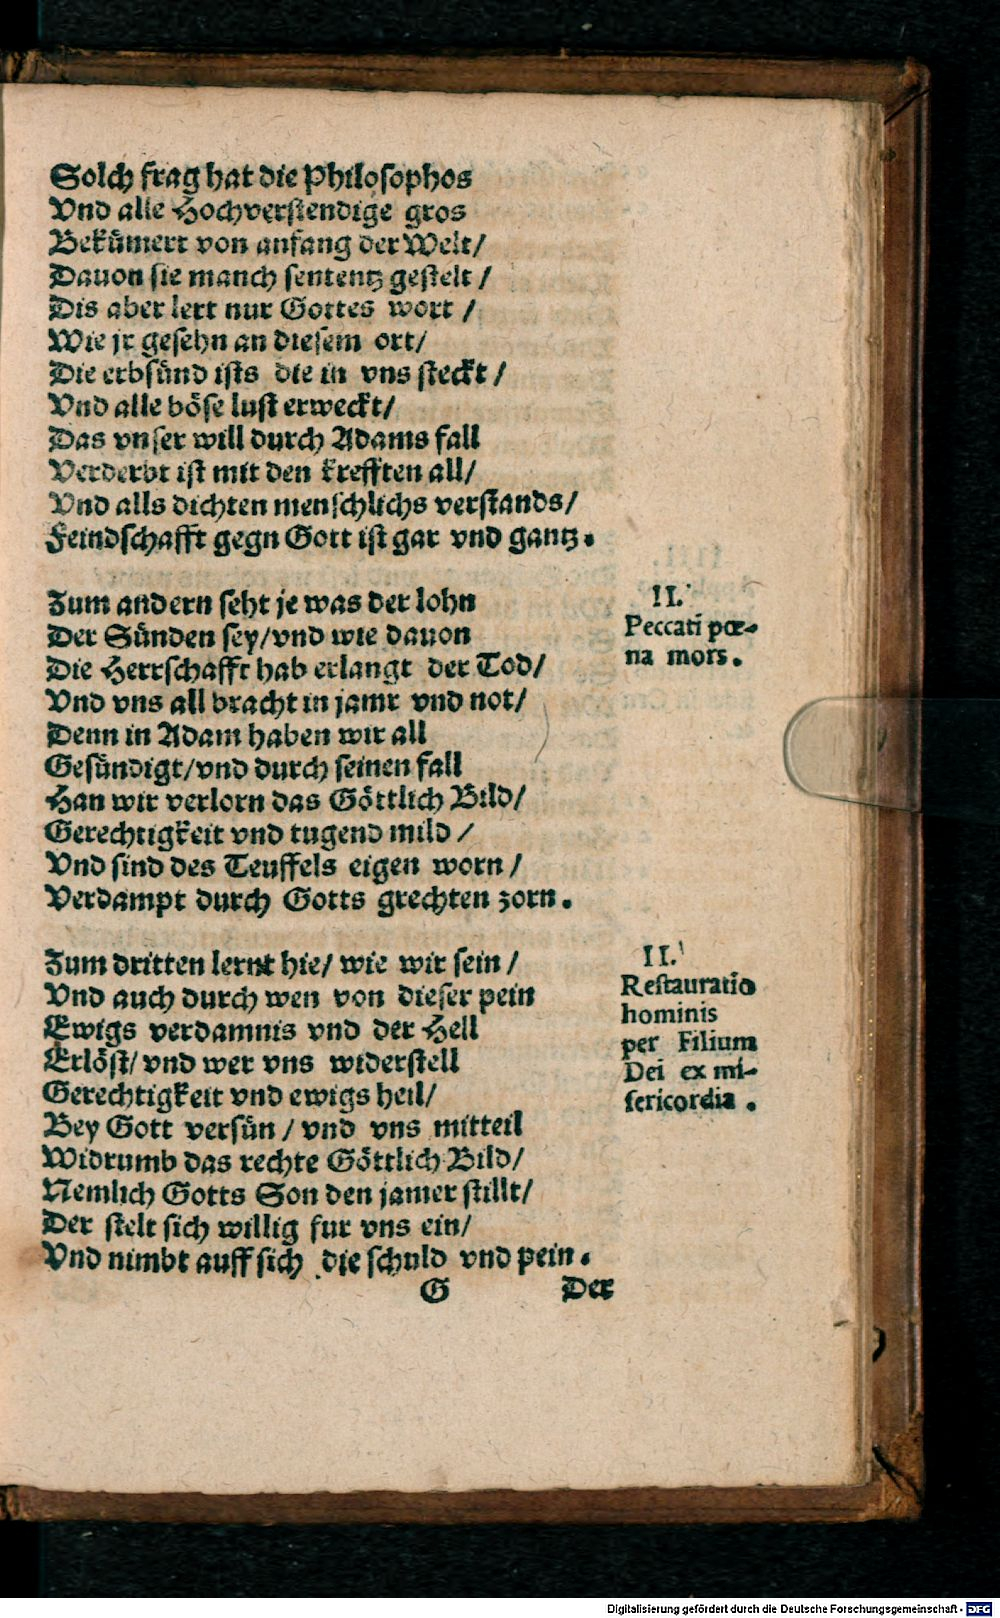 Solch frag hat die Philosophos
Vnd alle Hochverstendige gros
Bekümert von anfang der Welt/
Dauon sie manch sententz gestelt /
Dis aber lert nur Gottes wort /
Wie jr gesehn an diesem ort/
Die erbsünd ists die in vns steckt /
Vnd alle böse lust erweckt/
Das vnser will durch Adams fall
Verderbt ist mit den krefften all/
Vnd alls dichten menschlichs verstands/
Feindschafft gegn Gott ist gar vnd gantz.
Zum andern seht je was der lohn
Der Sünden sey/vnd wie dauon
Die Herrschafft hab erlangt der Tod/
Vnd vns all bracht in jamr vnd not/
Denn in Adam haben wir all
Gesündigt/vnd durch seinen fall
Han wir verlorn das Göttlich Bild/
Gerechtigkeit vnd tugend mild /
Vnd sind des Teuffels eigen worn /
Verdampt durch Gotts grechten zorn.
II.
Peccati pœ-
na mors.
Zum dritten lernt hie/ wie wir sein /
Vnd auch durch wen von dieser pein
Ewigs verdamnis vnd der Hell
Erlöst/ vnd wer vns widerstell
Gerechtigkeit vnd ewigs heil/
Bey Gott versün / vnd vns mitteil
Widrumb das rechte Göttlich Bild/
Nemlich Gotts Son den jamer stillt/
Der stelt sich willig fur vns ein/
Vnd nimbt auff sich die schuld vnd pein.
II.
Restauratio
hominis
per Filium
Dei ex mi-
sericordia .
G Der
Digitalisierung gefördert durch die Deutsche Forschungsgemeinschaft - DFG